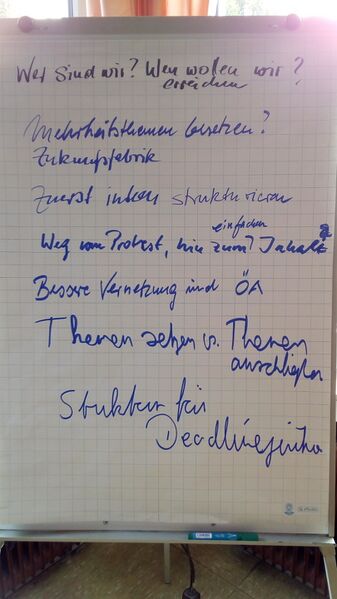 Wer sind wir? Wen wollen wir?
erreichen
Mehrheitsthemen besetzen?
Zukunftsfabrik
Zuerst intern strukturieren
einfachen
Weg vom Protest, hin zum? Inhalt
Bessere Vernetzung und ÖA
Themen setzen vs. Themen
anschließen
Struktur für